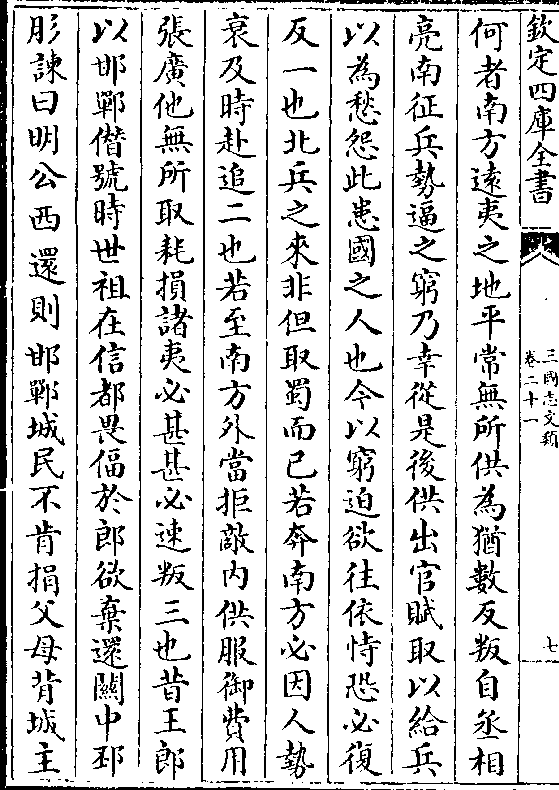 欽定四庫全書
三國志文類
卷二十一
七
何者南方遠夷之地平常無所供為猶數反叛自丞相
亮南征兵勢逼之窮乃幸從是後供出官賦取以給兵
以為愁怨此患國之人也今以窮迫欲往依恃恐必復
反一也北兵之來非但取蜀而已若奔南方必因人勢
衰及時赴追二也若至南方外當拒敵内供服御費用
張廣他無所取耗損諸夷必甚甚必速叛三也昔王郎
以邯鄲僣號時世祖在信都畏偪於郎欲棄還關中邳
肜諫曰明公西還則邯鄲城民不肯捐父母背城主